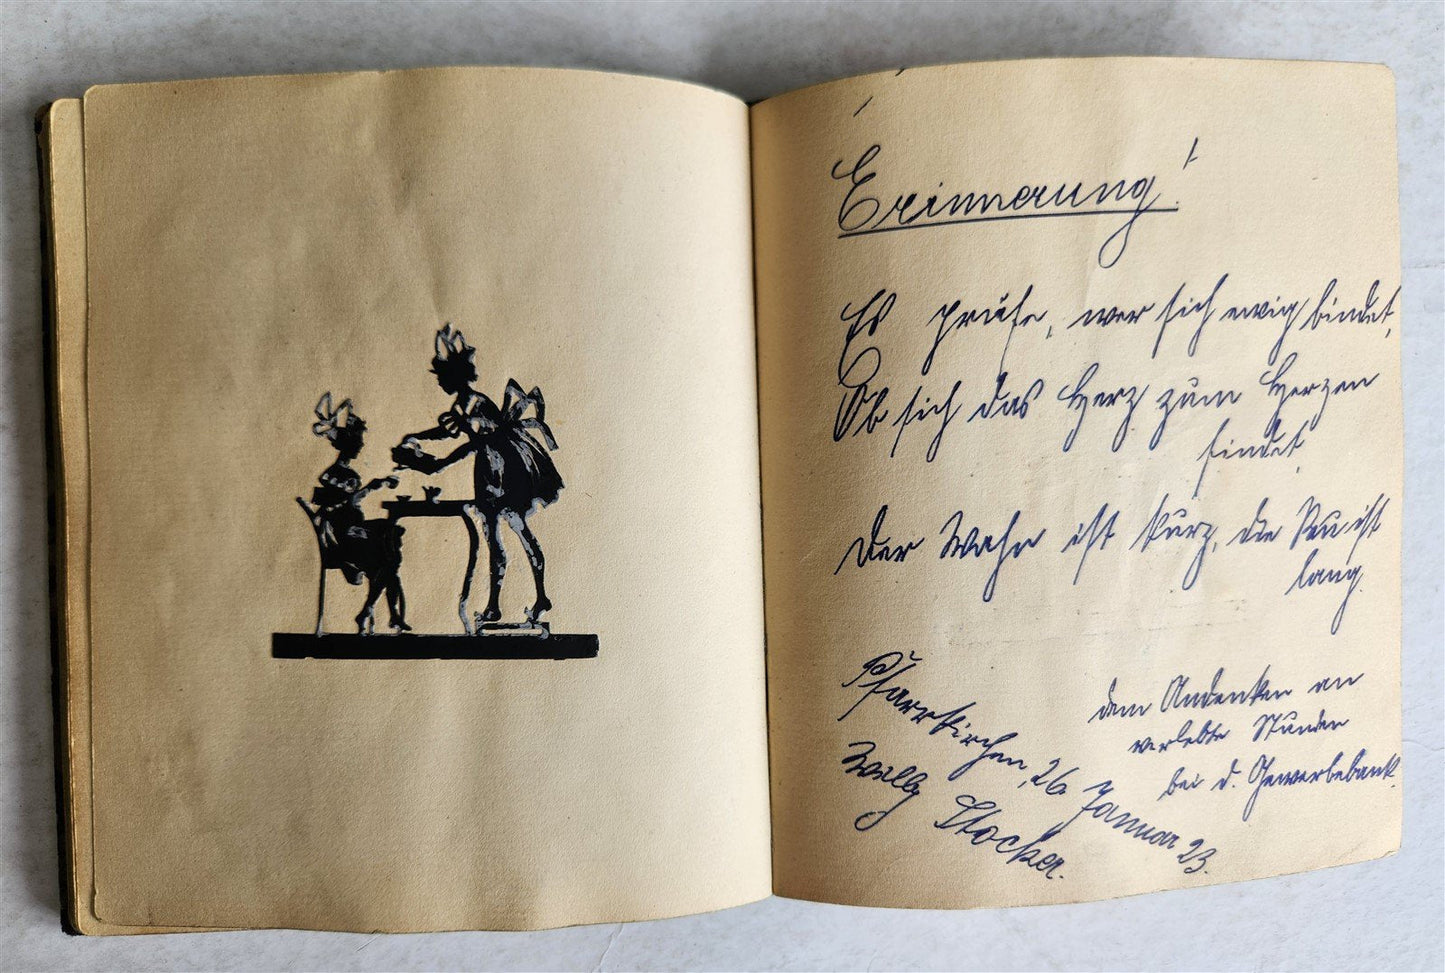 Erinnerung!
Es prüfe, wer sich ewig bindet,
Ob sich das Herz zum Herzen
findet.
Der Wahn ist kurz, die Reu ist
lang.
Pfarrkirchen, 26. Januar 23.
Willy Stocker.
dem Andenken an
verlebte Stunden
bei d. Gewerbebank.